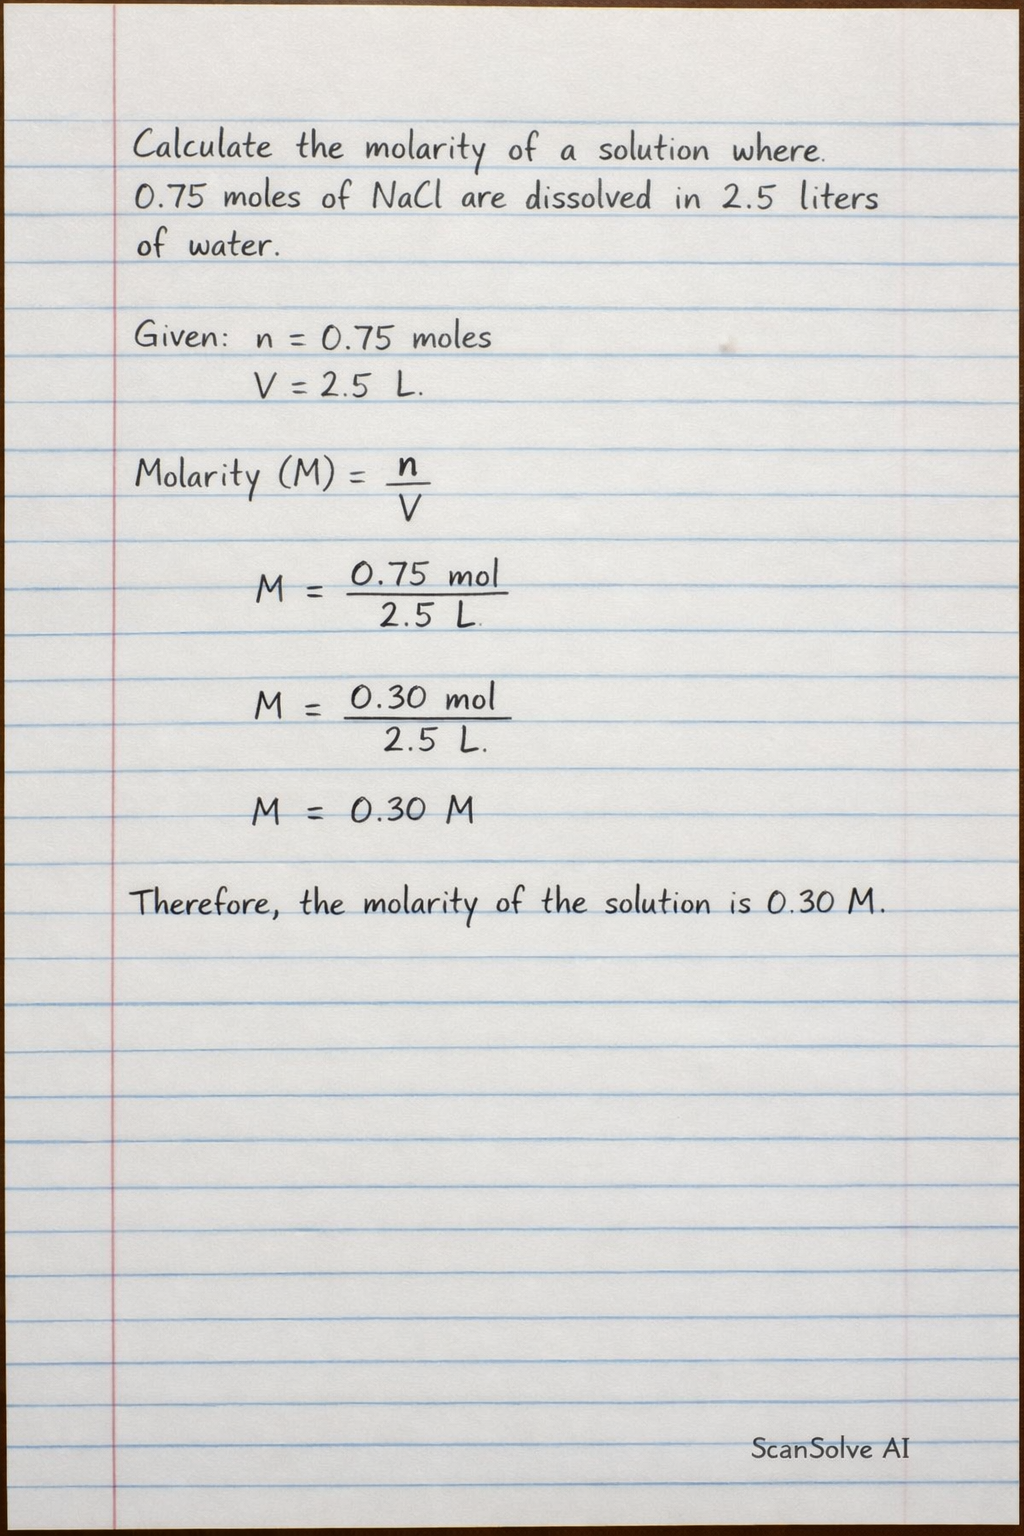 Calculate the molarity of a solution where.
0.75 moles of NaCl are dissolved in 2.5 liters
of water.
Given: n = 0.75 moles
V = 2.5 L.
Molarity (M) = n
V
M = 0.75 mol
2.5 L.
M = 0.30 mol
2.5 L.
M = 0.30 M
Therefore, the molarity of the solution is 0.30 M.
ScanSolve AI